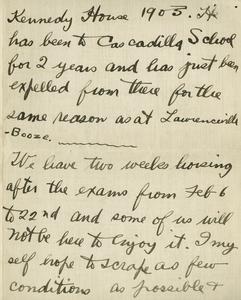 Kennedy House 1903. He
has been to Cascadilla School
for 2 years and has just been
expelled from there for the
same reason as at Lawrenceville
-Booze.
We have two weeks
after the exams from Feb-6
to 22nd and some of us will
not be here to enjoy it. I my
self hope to scrape as few
conditions as possible &